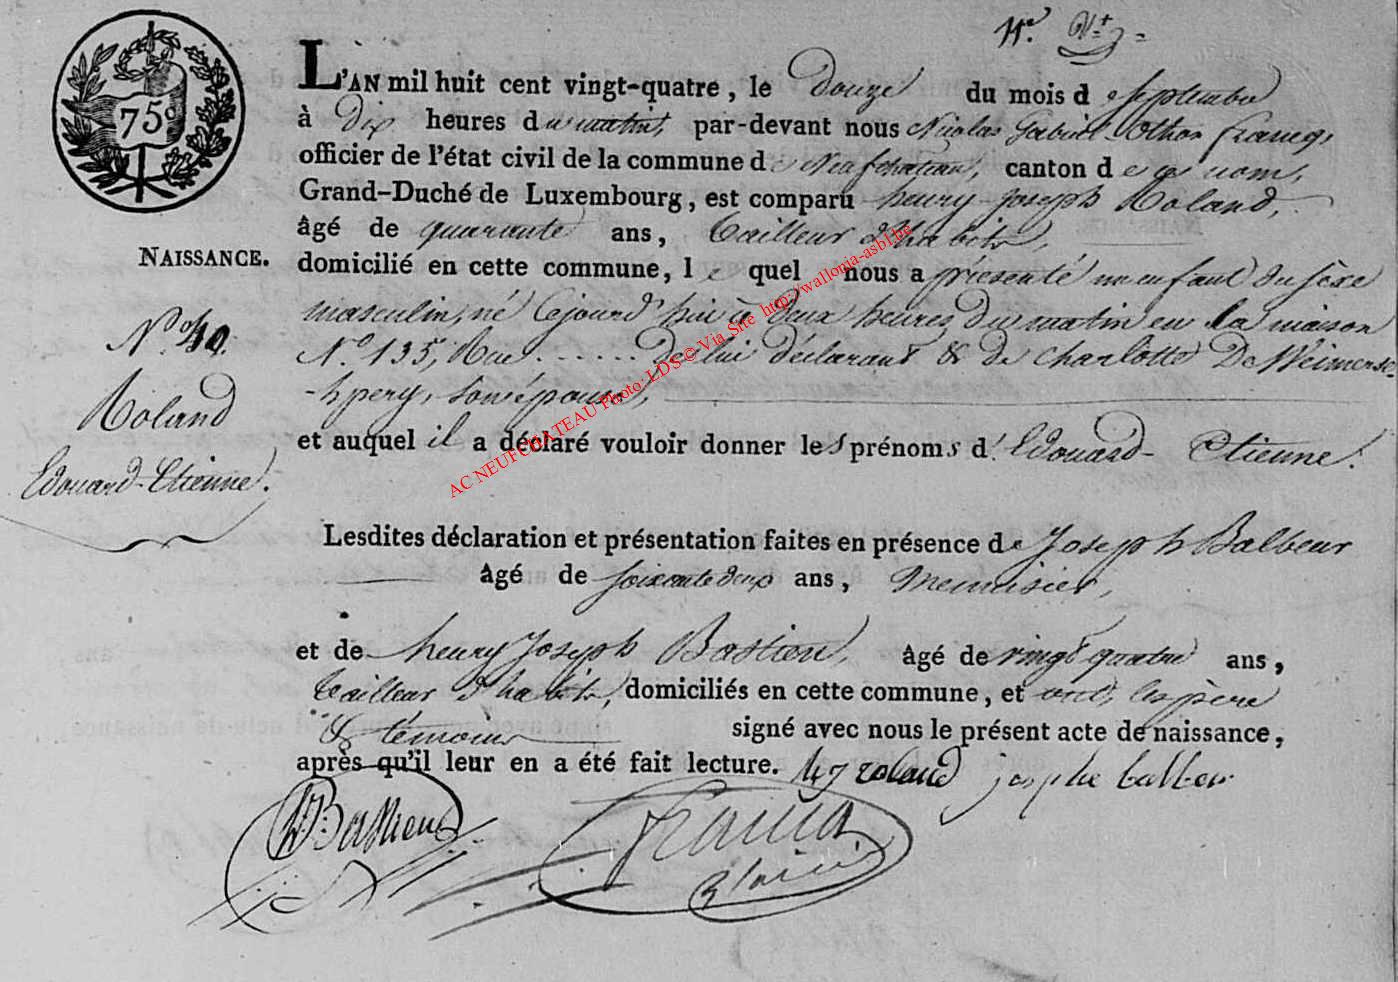 75c
L'AN mil huit cent vingt-quatre, le Douze du mois de Septembre
à Dix heures du matin, par-devant nous Nicolas Gabriel Othon Francq,
officier de l'état civil de la commune de Neufchateau, canton de ce nom,
Grand-Duché de Luxembourg, est comparu henry Joseph Roland,
âgé de quarante ans, tailleur d'habits,
NAISSANCE.
domicilié en cette commune, le quel nous a présenté un enfant du sèxe
masculin, né Cejourd'hui à deux heures du matin en la maison
N° 135, Rue ...... De lui déclarant & de Charlotte De Weimers-
-hpery, son épouse,
N° 49.
Roland
Edouard-Etienne.
et auquel il a déclaré vouloir donner les prénoms d'Edouard-Etienne.
Lesdites déclaration et présentation faites en présence de Joseph Balbeur
âgé de soixante deux ans, Menuisier,
et de henry Joseph Bastien, âgé de vingt quatre ans,
tailleur d'habits, domiciliés en cette commune, et ont, les père
& témoins signé avec nous le présent acte de naissance,
après qu'il leur en a été fait lecture. hy roland josephe balbeur
Bastien
Francq
AC NEUFCHATEAU Photo: LDS © Via_Site http://wallonia-asbl.be